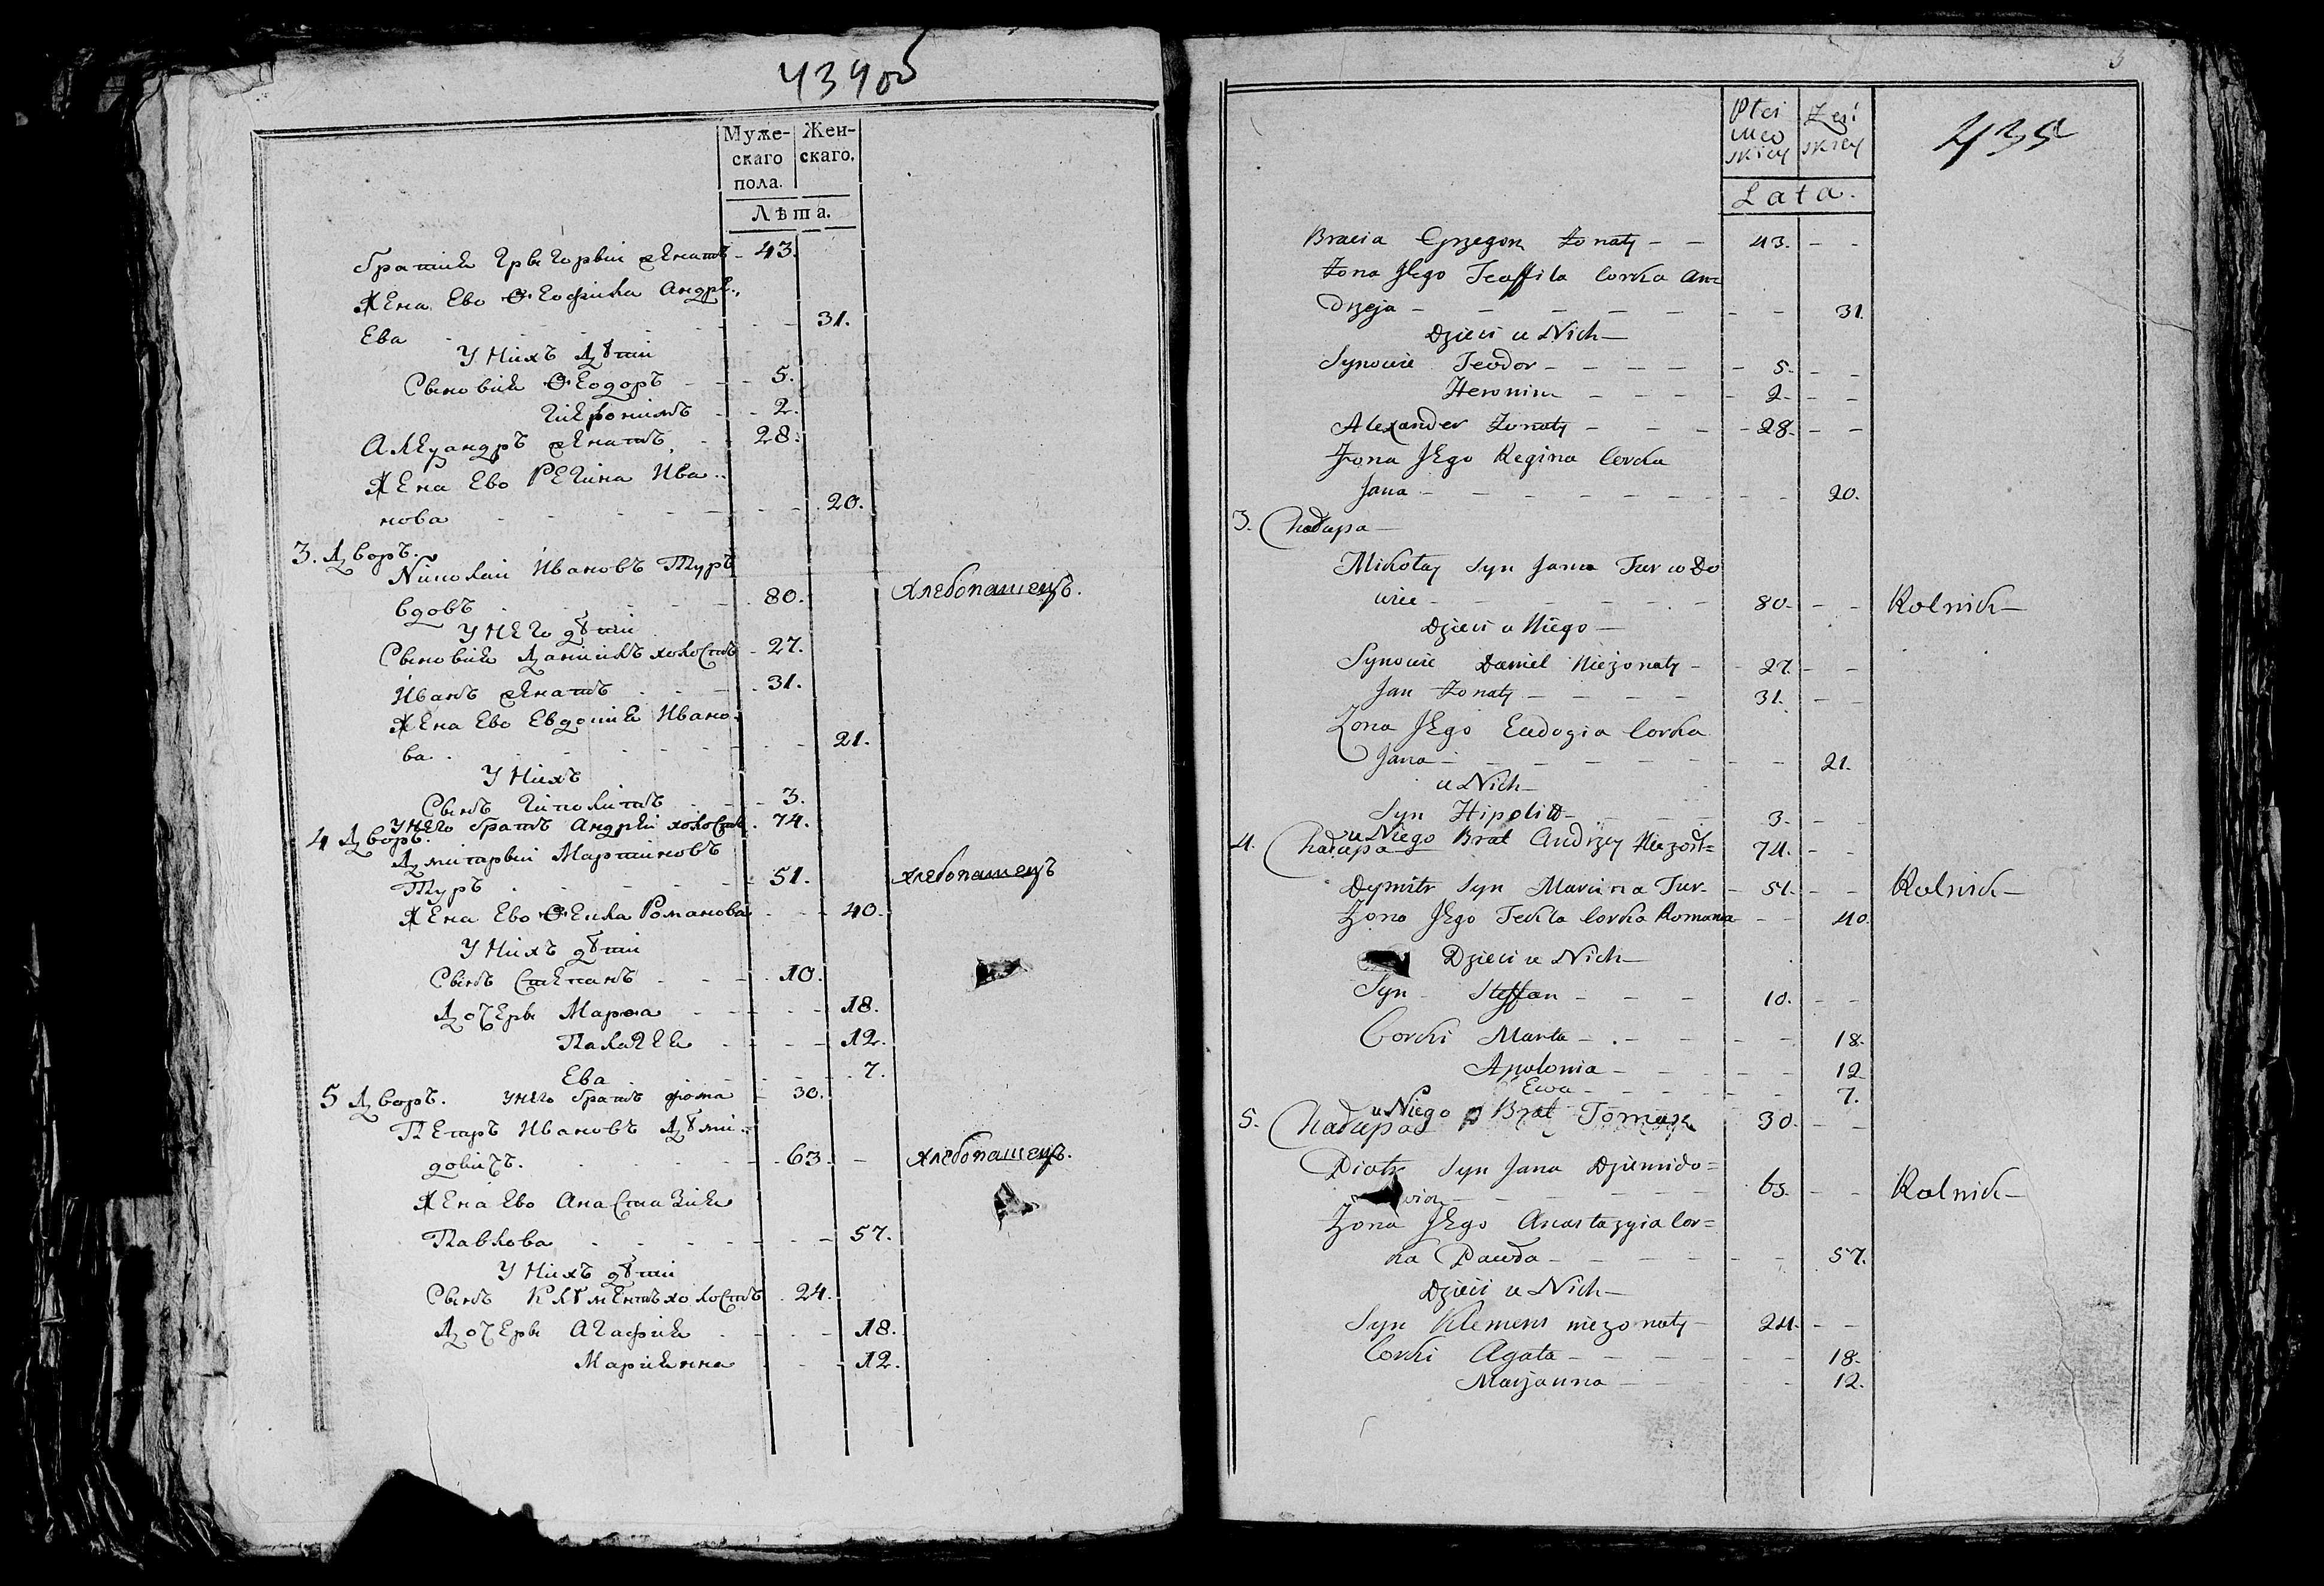 434 об
Муже-
скаго
пола.
Жен-
скаго.
Лѣта.
братия Григорий женатъ - 43.
Жена Ево Ѳеофила Андре..
Ева 31.
У Нихъ дѣти
Сыновия Ѳеодоръ - 5.
Гиеронимъ - 2.
Алеѯандръ женатъ 28.
Жена Ево Регина Ива..
нова 20.
3. Дворъ.
Николай Ивановъ Туръ
вдовъ 80. хлебопашецъ.
У Него дѣти
Сыновия Даниилъ холостъ - 27.
Иванъ женатъ 31.
Жена Ево Евдокия Ивано..
ва 21.
У Нихъ
Сынъ Гиполитъ 3.
у Него братъ Андрей холостъ 74.
4 Дворъ.
Дмитрий Мартиновъ
Туръ 51. хлебопашецъ
Жена Ево Ѳекла Романова 40.
У Нихъ дѣти
Сынъ Степанъ 10.
Дочери Марѳа 18.
Палагея 12.
Ева 7.
5 Дворъ. у Него братъ Фома 30.
Петръ Ивановъ Дѣми..
довичъ. 63. хлебопашецъ.
Жена Ево Анастазия
Павлова 57.
У Нихъ дѣти
Сынъ Клѣментъ холостъ 24.
Дочери Агафия 18.
Марианна 12.
3
435
Płci
męs
skiey
Żeń
skiey
Lata.
Bracia Grzegorz Żonaty - - 43. - -
Żona JEgo Teoffila Corka An=
drzeja - - - - 31.
Dzieci u Nich —
Synowie Teodor - - - - 5. - -
Heronim - - - - 2. - -
Alexander Żonaty - - - 28. - -
Żona JEgo Regina Corka
Jana - - - - 20.
3. Chałupa —
Mikołay Syn Jana Tur wdo
wiec - - - - 80. - - Rolnik —
Dzieci u Niego —
Synowie Daniel Nieżonaty - 27. - -
Jan Żonaty - - - - 31. - -
Żona JEgo Eudogia Corka
Jana - - - - 21.
u Nich —
Syn Hipolit - - 3. - -
u Niego Brat Andrzey Nieżon= 74. - -
4. Chałupa —
Dymitr Syn Marcina Tur - 51. - - Rolnik —
Żona JEgo Tekla Corka Romana - - 40.
Dzieci u Nich —
Syn - Steffan - - - 10. - -
Corki Marta - - - - 18.
Apolonia - - - - 12
Ewa - - - - 7.
u Niego Brat Tomasz 30. - -
5. Chałupa
Piotr Syn Jana Dziemido=
wicz - - - - 63. - - Rolnik —
Żona JEgo Anastazyia Cor=
ka Pawła - - - - 57.
Dzieci u Nich —
Syn Klemens nieżonaty - 24. - -
Corki Agata - - - - 18.
Marjanna - - - - 12.